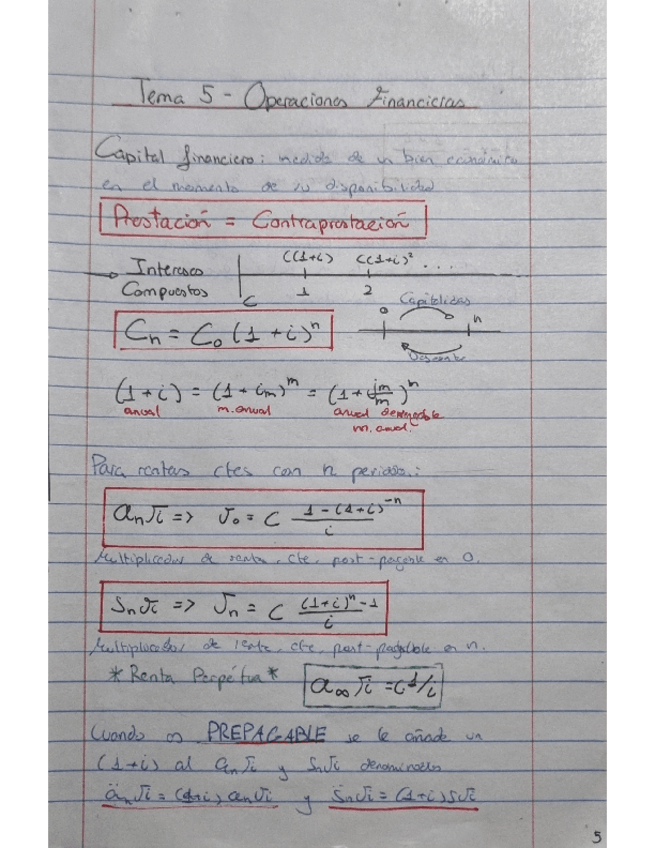 Tema 5 - Operaciones Financieras
Capital financiero: medida de un bien económico
en el momento de su disponibilidad
Prestación = Contraprestación
→ Intereses
Compuestos
C C(1+i) C(1+i)² ...
1 2
Cn = Co (1+i)^n
0 Capitalizas n
Descuento
(1+i) = (1+im)^m = (1+jm/m)^m
anual m.anual anual devengable
m.anual.
Para rentas ctes con n periodos:
an⌐i => Vo = C (1-(1+i)^-n)/i
Multiplicador de renta. cte. post-pagable en 0.
Sn⌐i => Vn = C ((1+i)^n-1)/i
Multiplicador de renta. cte. post-pagable en n.
*Renta Perpétua* a∞⌐i = C 1/i
Cuando es PREPAGABLE se le añade un
(1+i) al an⌐i y Sn⌐i denominados
än⌐i = (1+i) an⌐i y S̈n⌐i = (1+i) S⌐i
5